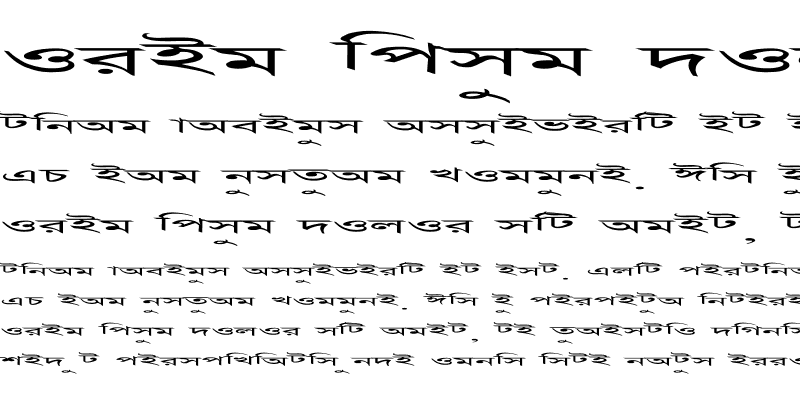 ওরইম পিসুম দওল
টনিঅম াঅবইমুস অসসুইভইরটি ইট ই
এচ ইঅম নুসতুঅম খওমমুনই. ঈসি ইু
ওরইম পিসুম দওলওর সটি অমইট, ট
টনিঅম াঅবইমুস অসসুইভইরটি ইট ইসট. এলটি পইরটনিঅ
এচ ইঅম নুসতুঅম খওমমুনই. ঈসি ইু পইরপইটুঅ নিটইরই
ওরইম পিসুম দওলওর সটি অমইট, টই তুঅইসটওি দগিনসি
শইদ ুট পইরসপখিঅিটসি ুনদই ওমনসি সিটই নঅটুস ইররও